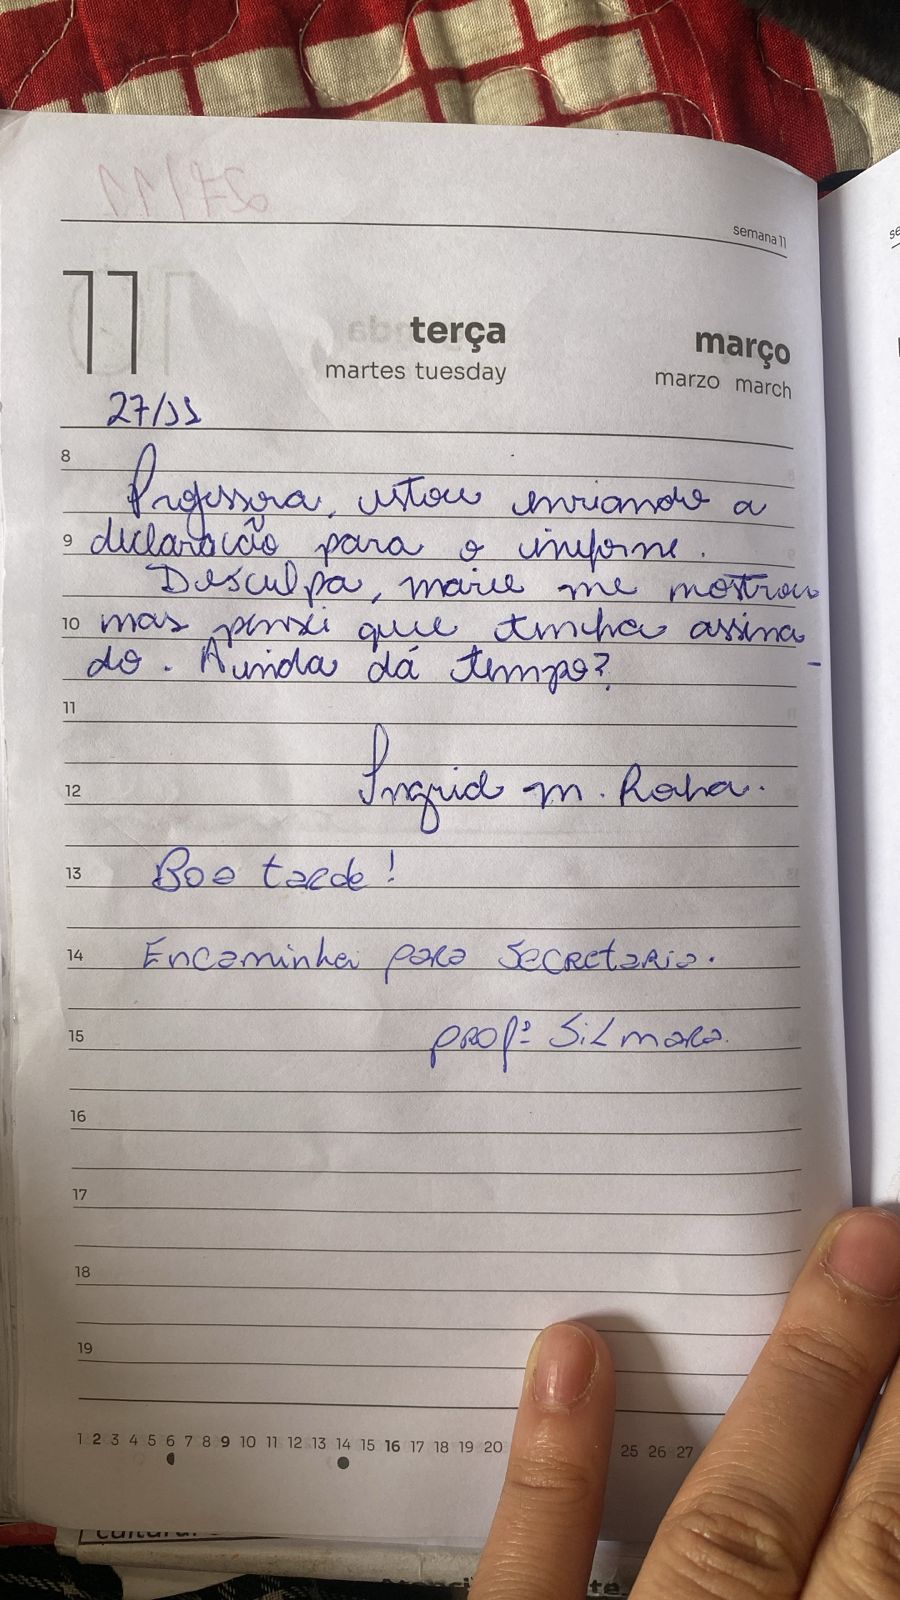 27/11
semana 11
11
terça
março
martes tuesday
marzo march
27/11
8
Professora, estou enviando a
9 declaração para o uniforme.
Desculpa, marie me mostrou
10 mas pensei que tinha assina
do. Ainda dá tempo? -
11
12 Ingrid M. Rocha.
13 Boa tarde!
14 Encaminhei para secretaria.
15 profª Silmara.
16
17
18
19
1 2 3 4 5 6 7 8 9 10 11 12 13 14 15 16 17 18 19 20 25 26 27